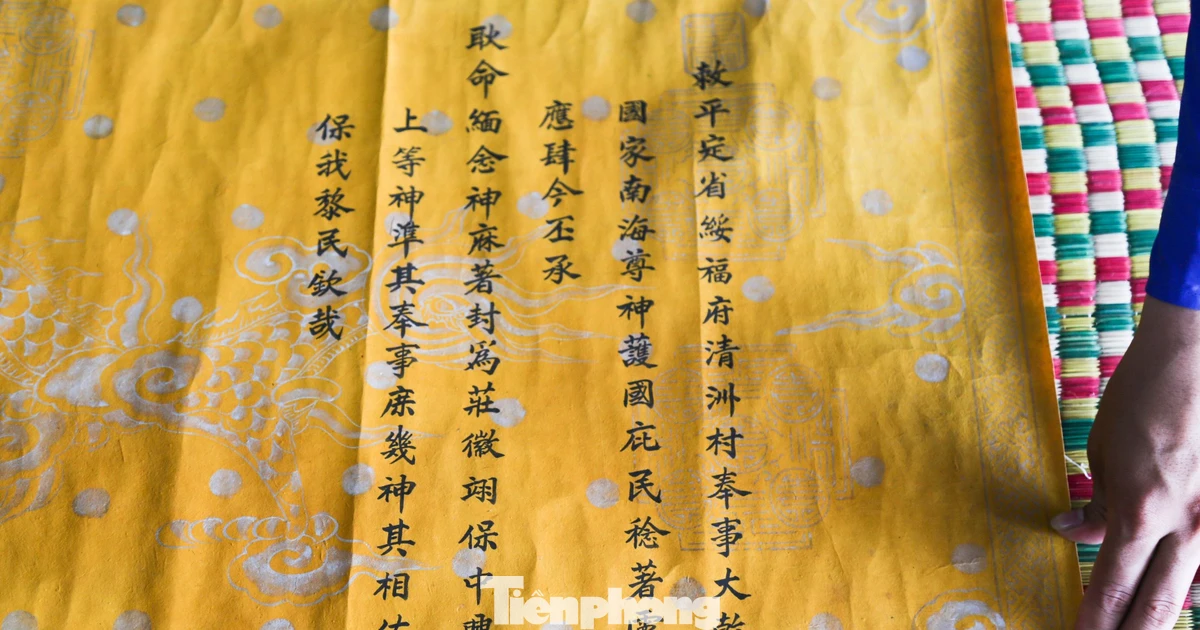 敕平定省綏福府清洲村奉事大乾
國家南海尊神護國庇民稔著靈
應肆今丕承
耿命緬念神庥著封爲莊徽翊保中興
上等神準其奉事庶幾神其相佑
保我黎民欽哉
Tiênphong